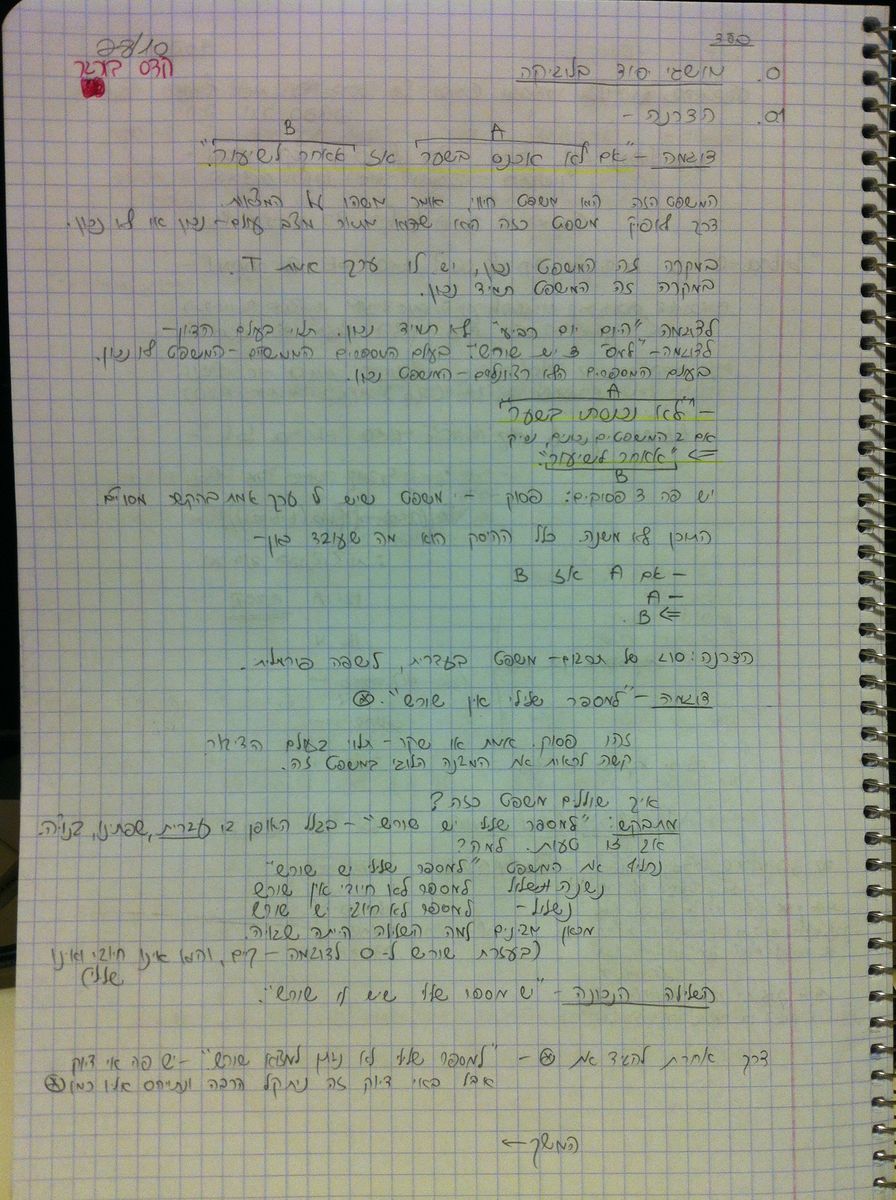 בס"ד
28/10
הדס
0. מושגי יסוד בלוגיקה
0.1 הצרנה -
B A
דוגמה - "אם לא אכנס בשער אז אאחר לשיעור".
המשפט הזה הוא משפט חיווי, אומר משהו על המציאות.
דרך לאפיין משפט כזה היא שהוא מתאר מצב עולם - נכון או לא נכון.
במקרה זה המשפט נכון, יש לו ערך אמת T.
במקרה זה המשפט תמיד נכון.
לדוגמה "היום יום רביעי" לא תמיד נכון. תלוי בעולם הדיון -
לדוגמה - "למס' 3 יש שורש": בעולם המספרים הממשיים - המשפט לא נכון.
בעולם המספרים הלא רציונלים - המשפט נכון.
A
- "לא נכנסתי בשער"
אם 2 המשפטים נכונים, נסיק
⇐ "אאחר לשיעור".
B
יש פה 3 פסוקים: פסוק - משפט שיש לו ערך אמת בהקשר מסויים.
התוכן לא משנה. כלל ההיסק הוא מה שעובד כאן -
- אם A אז B
- A
⇐ B.
הצרנה: סוג של תרגום - משפט בעברית, לשפה פורמלית.
דוגמה - "למספר שלילי אין שורש". ⊗
זהו פסוק. אמת או שקר - תלוי בעולם הדיבור.
קשה לראות את המבנה הלוגי במשפט זה.
איך שוללים משפט כזה?
מתבקש: "למספר שלילי יש שורש" - בגלל האופן בו עברית, שפתינו, בנויה.
אך זו טעות. למה?
נחליף את המשפט "למספר שלילי יש שורש"
נשנה למספר לא חיובי אין שורש
נשלול - למספר לא חיובי יש שורש
מכאן מבינים למה השלילה היתה שגויה.
(בעזרת שורש ל-0 לדוגמה - קיים, והוא אינו חיובי ואינו
שלילי)
השלילה הנכונה - "יש מספר שלילי שיש לו שורש".
דרך אחרת להגיד את ⊗ - "למספר שלילי לא ניתן למצוא שורש" - יש פה אי דיוק
אבל באי דיוק זה ניתקל הרבה ונתייחס אליו כמו ⊗
המשך ←